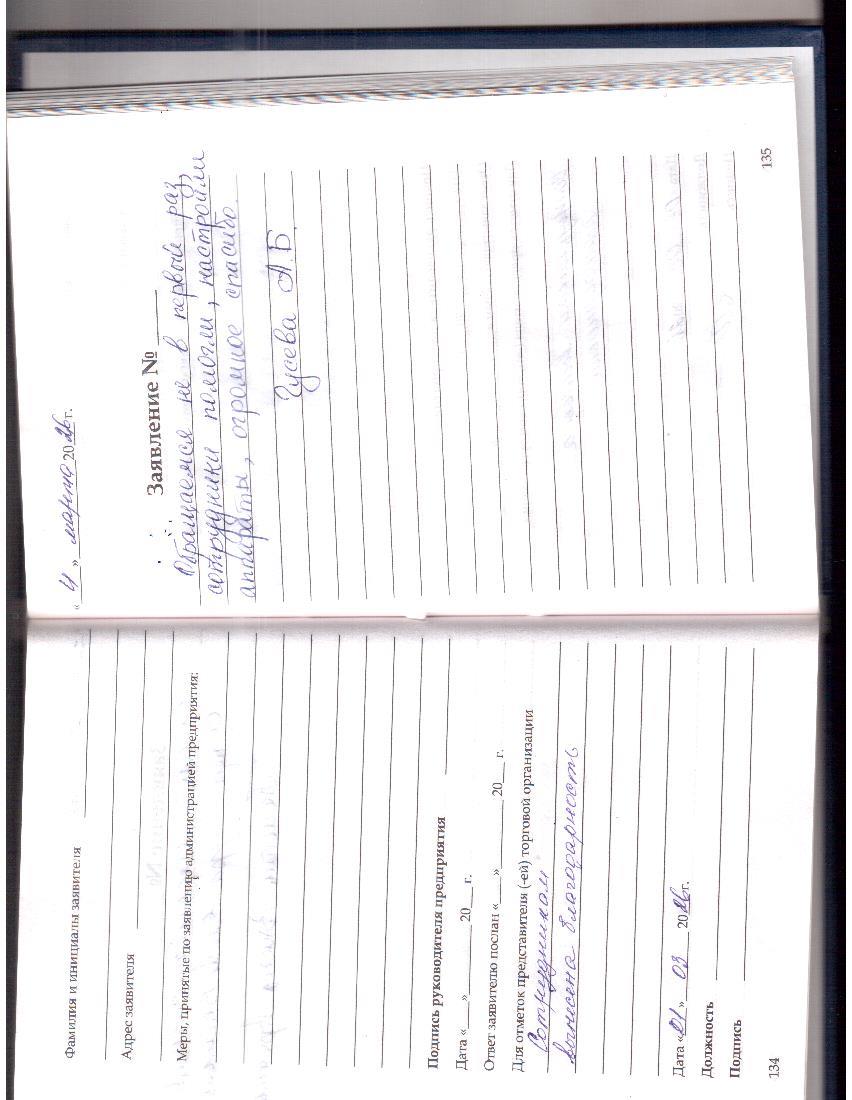 Фамилия и инициалы заявителя
Адрес заявителя
Меры, принятые по заявлению администрацией предприятия:
Подпись руководителя предприятия
Дата «___» ______ 20___ г.
Ответ заявителю послан «___» ______ 20___ г.
Для отметок представителя (-ей) торговой организации
Сотрудникам
вынесена благодарность
Дата « » 03 2026г.
Должность
Подпись
134
« » марта 2026г.
Заявление № ____
Обращаемся не в первый раз,
сотрудники помогли, настроили
аппараты, огромное спасибо.
Гусева А.Б.
135